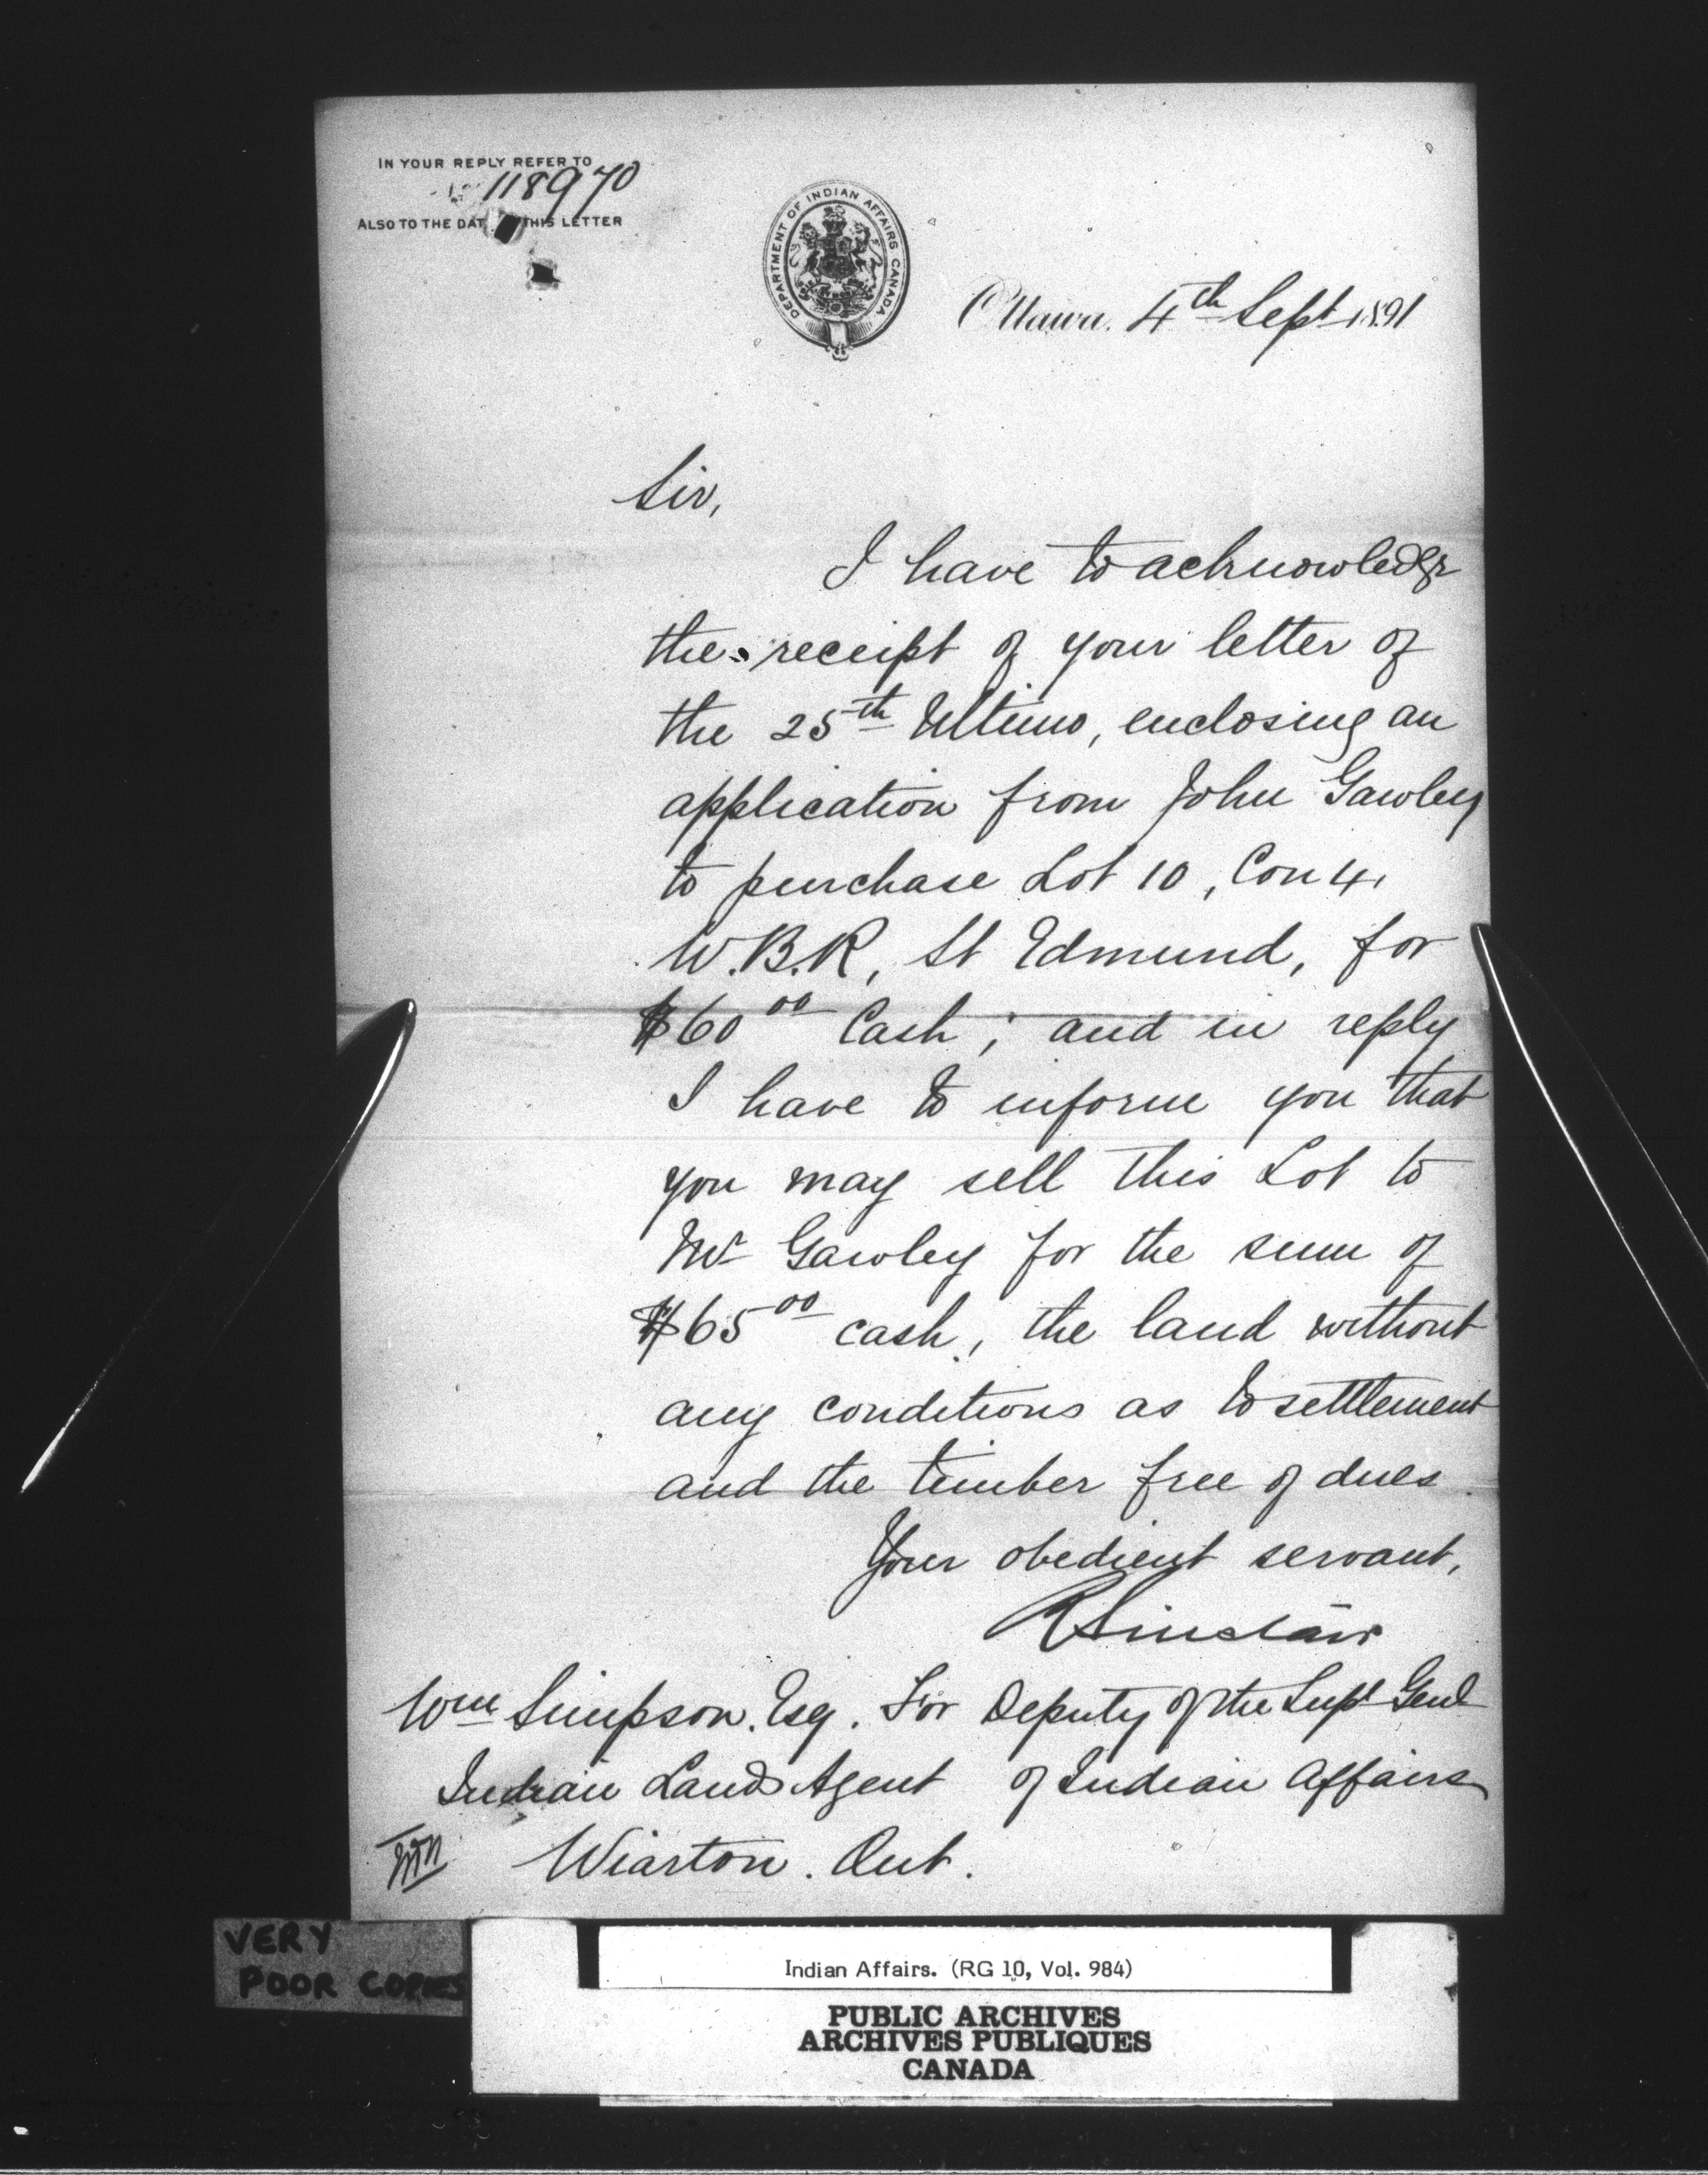 IN YOUR REPLY REFER TO
No 118970
ALSO TO THE DATE THIS LETTER
DEPARTMENT OF INDIAN AFFAIRS CANADA
Ottawa, 4th Sept 1891
Sir,
I have to acknowledge
the receipt of your letter of
the 25th Ultimo, enclosing an
application from John Gawley
to purchase Lot 10, Con 4,
W.B.R, St Edmund, for
$60 00 Cash; and in reply
I have to inform you that
you may sell this Lot to
Mr Gawley for the sum of
$65 00 cash, the land without
any conditions as to settlement
and the timber free of dues.
Your obedient servant,
R Sinclair
Wm Simpson. Esq. For Deputy of the Supt Genl
Indian Lands Agent of Indian Affairs
Wiarton. Ont.
VERY
POOR COPIES
Indian Affairs. (RG 10, Vol. 984)
PUBLIC ARCHIVES
ARCHIVES PUBLIQUES
CANADA